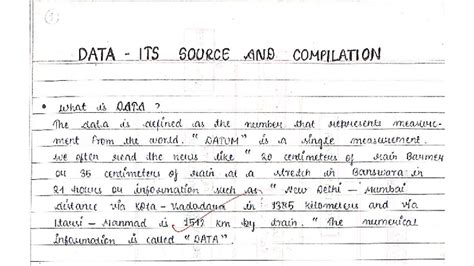 DATA - ITS SOURCE AND COMPILATION
• What is DATA ?
The data is defined as the number that represents measure-
ment from the world. "DATUM" is a single measurement.
we often read the news like "20 centimeters of rain Barmer
or 35 centimeters of rain at a stretch in Banswara in
24 hours or information such as "New Delhi - Mumbai
distance via Kota - Vadodara in 1385 kilometers and via
Itarsi - Manmad is 1542 km by train." The numerical
information is called "DATA".